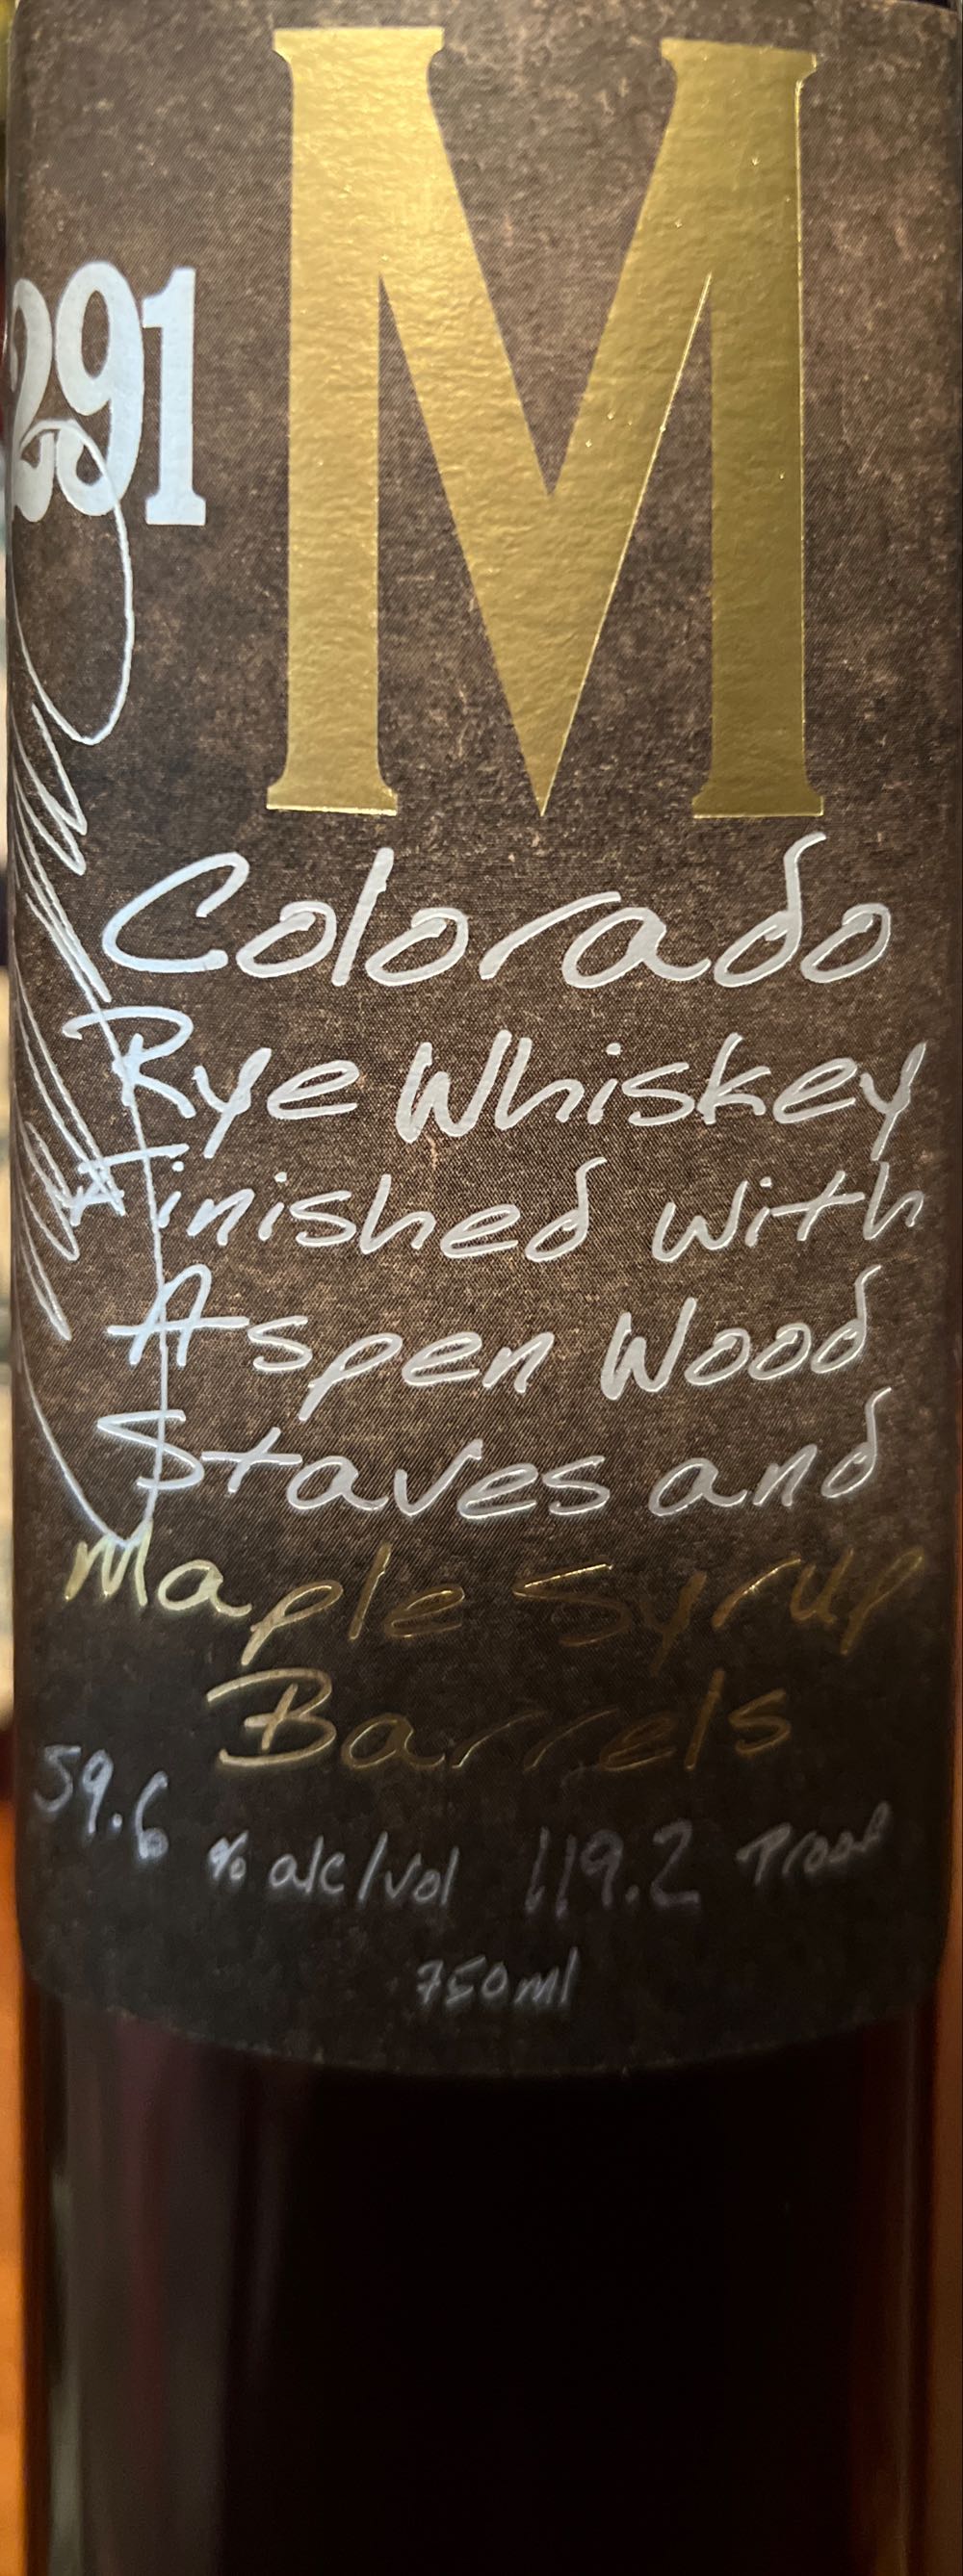 M
291
Colorado
Rye Whiskey
Finished with
Aspen Wood
Staves and
Maple Syrup
Barrels
59.6 % alc/vol 119.2 Proof
750ml